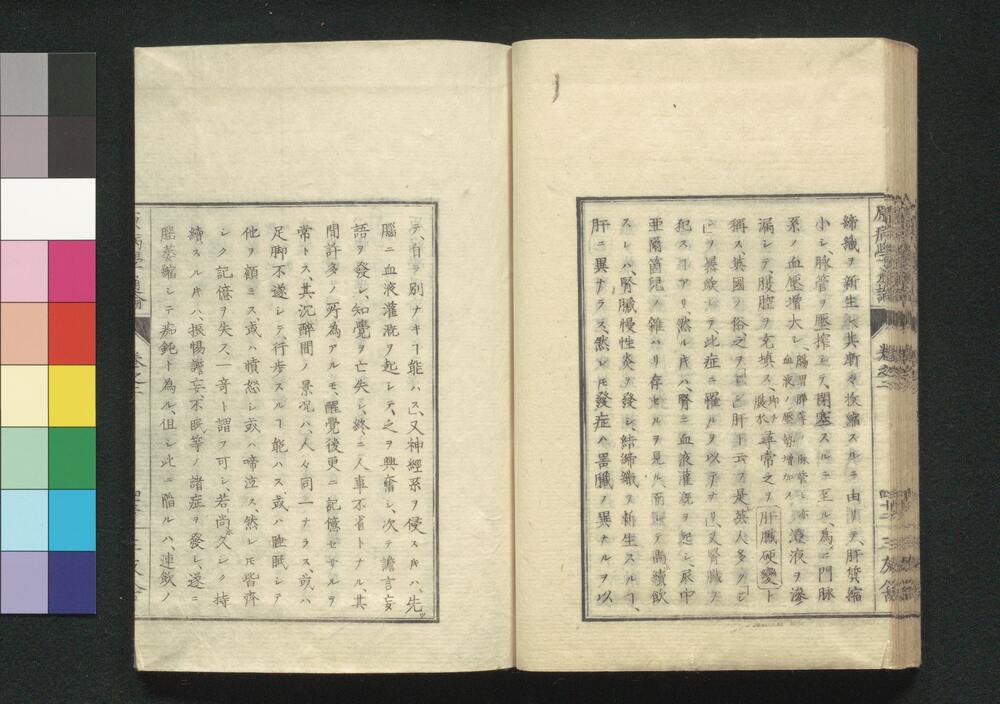 締織ヲ新生シ其漸々抜縮スルニ由リテ、肝質縮
小シ脉管ヲ壓搾シテ、閉塞スルニ至ル、為ニ門脉
系ノ血壓増大シ、腸胃脾等ノ脉管モ亦血液ノ壓皆増加ス澄液ヲ滲
漏シテ、腹腔ヲ充填ス、即チ腹水尋常之ヲ「肝臓硬變」ト
稱ス、英國ノ俗之ヲ肝ト云フ是英人多クシ
ンヲ暴飲シテ、此症ニ罹ルヲ以テナリ、又腎臓ヲ
犯スヿアリ、然ル片ハ、腎ニ血液灌漑ヲ起シ、尿中
亜爾箇兒ノ雜ハリ存セルヲ見ル、而シテ尚續飲
スレハ、腎臓慢性炎ヲ發シ、結締織ヲ新生スルヿ、
肝ニ異ナラス、然レ𪜈發症ハ器臓ノ異ナルヲ以
原病學通論 卷之二 四十二 三友舎
テ、自ラ別ナキヿ能ハス、又神經系ヲ侵ス片ハ、先
腦ニ血液灌漑ヲ起シテ、之ヲ興奮シ、次テ譫言妄
語ヲ發シ、知覺ヲ亡失シ、終ニ人事不省トナル、其
間許多ノ所為アルモ、醒覺後更ニ記憶セサルヲ
常トス、其沉醉間ノ景况ハ、人々同一ナラス、或ハ
足脚不遂シテ、行歩スルヿ能ハス或ハ睡眠シテ
他ヲ顧ミス、或ハ憤怒シ或ハ啼泣ス、然レ𪜈皆齊
シク記憶ヲ失ス、一奇ト謂フ可シ、若尚久シク持
續スル片ハ、振惕譫妄、不眠等ノ諸症ヲ發シ、遂ニ
腦萎縮シテ痴鈍ト為ル、但シ此ニ陥ルハ、連飲ノ